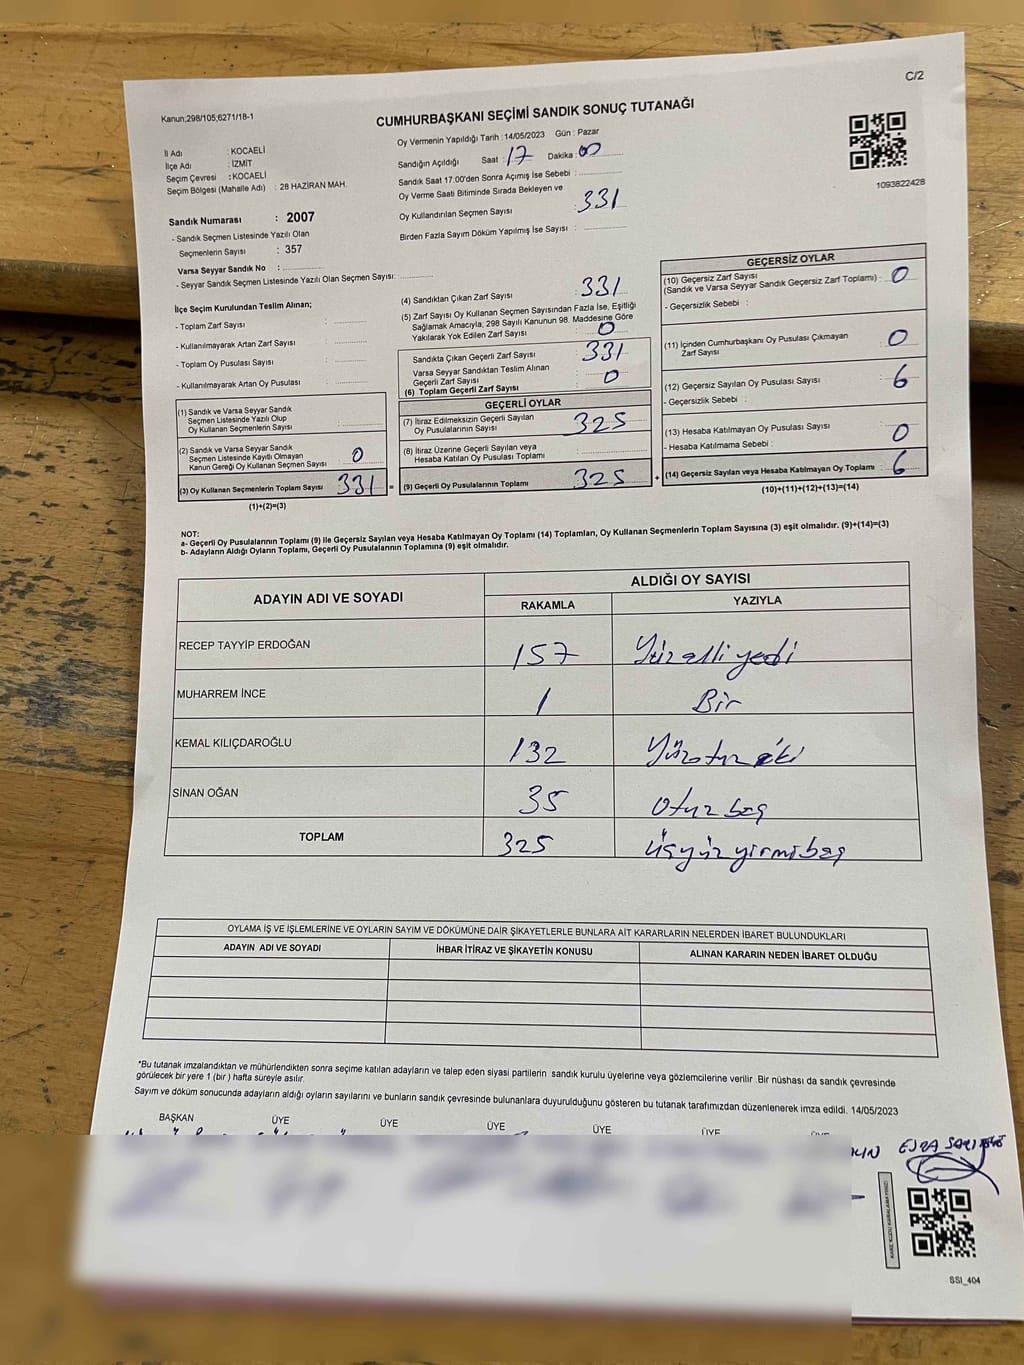 C/2
Kanun;298/105;6271/18-1
CUMHURBAŞKANI SEÇİMİ SANDIK SONUÇ TUTANAĞI
Oy Vermenin Yapıldığı Tarih : 14/05/2023 Gün : Pazar
İl Adı : KOCAELİ
İlçe Adı : İZMİT
Seçim Çevresi : KOCAELİ
Seçim Bölgesi (Mahalle Adı) : 28 HAZİRAN MAH.
Sandık Numarası : 2007
- Sandık Seçmen Listesinde Yazılı Olan
Seçmenlerin Sayısı : 357
Varsa Seyyar Sandık No :
- Seyyar Sandık Seçmen Listesinde Yazılı Olan Seçmen Sayısı:
Sandığın Açıldığı Saat : 17 Dakika : 00
Sandık Saat 17.00'den Sonra Açımış İse Sebebi :
Oy Verme Saati Bitiminde Sırada Bekleyen ve
Oy Kullandırılan Seçmen Sayısı : 331
Birden Fazla Sayım Döküm Yapılmış İse Sayısı :
1093822428
İlçe Seçim Kurulundan Teslim Alınan;
- Toplam Zarf Sayısı :
- Kullanılmayarak Artan Zarf Sayısı :
- Toplam Oy Pusulası Sayısı :
- Kullanılmayarak Artan Oy Pusulası :
(1) Sandık ve Varsa Seyyar Sandık
Seçmen Listesinde Yazılı Olup
Oy Kullanan Seçmenlerin Sayısı :
(2) Sandık ve Varsa Seyyar Sandık
Seçmen Listesinde Kayıtlı Olmayan
Kanun Gereği Oy Kullanan Seçmen Sayısı : 0
(3) Oy Kullanan Seçmenlerin Toplam Sayısı : 331 =
(1)+(2)=(3)
(4) Sandıktan Çıkan Zarf Sayısı : 331
(5) Zarf Sayısı Oy Kullanan Seçmen Sayısından Fazla İse, Eşitliği
Sağlamak Amacıyla, 298 Sayılı Kanunun 98. Maddesine Göre
Yakılarak Yok Edilen Zarf Sayısı : 0
Sandıkta Çıkan Geçerli Zarf Sayısı : 331
Varsa Seyyar Sandıktan Teslim Alınan
Geçerli Zarf Sayısı : 0
(6) Toplam Geçerli Zarf Sayısı :
GEÇERLİ OYLAR
(7) İtiraz Edilmeksizin Geçerli Sayılan
Oy Pusulalarının Sayısı : 325
(8) İtiraz Üzerine Geçerli Sayılan veya
Hesaba Katılan Oy Pusulası Toplamı :
(9) Geçerli Oy Pusulalarının Toplamı : 325 +
GEÇERSİZ OYLAR
(10) Geçersiz Zarf Sayısı
(Sandık ve Varsa Seyyar Sandık Geçersiz Zarf Toplamı) : 0
- Geçersizlik Sebebi :
(11) İçinden Cumhurbaşkanı Oy Pusulası Çıkmayan
Zarf Sayısı : 0
(12) Geçersiz Sayılan Oy Pusulası Sayısı : 6
- Geçersizlik Sebebi :
(13) Hesaba Katılmayan Oy Pusulası Sayısı : 0
- Hesaba Katılmama Sebebi :
(14) Geçersiz Sayılan veya Hesaba Katılmayan Oy Toplamı : 6
(10)+(11)+(12)+(13)=(14)
NOT:
a- Geçerli Oy Pusulalarının Toplamı (9) ile Geçersiz Sayılan veya Hesaba Katılmayan Oy Toplamı (14) Toplamları, Oy Kullanan Seçmenlerin Toplam Sayısına (3) eşit olmalıdır. (9)+(14)=(3)
b- Adayların Aldığı Oyların Toplamı, Geçerli Oy Pusulalarının Toplamına (9) eşit olmalıdır.
ADAYIN ADI VE SOYADI
ALDIĞI OY SAYISI
RAKAMLA YAZIYLA
RECEP TAYYİP ERDOĞAN 157 Yüz elli yedi
MUHARREM İNCE 1 Bir
KEMAL KILIÇDAROĞLU 132 Yüzotuz iki
SİNAN OĞAN 35 Otuz beş
TOPLAM 325 üçyüz yirmi beş
OYLAMA İŞ VE İŞLEMLERİNE VE OYLARIN SAYIM VE DÖKÜMÜNE DAİR ŞİKAYETLERLE BUNLARA AİT KARARLARIN NELERDEN İBARET BULUNDUKLARI
ADAYIN ADI VE SOYADI İHBAR İTİRAZ VE ŞİKAYETİN KONUSU ALINAN KARARIN NEDEN İBARET OLDUĞU
*Bu tutanak imzalandıktan ve mühürlendikten sonra seçime katılan adayların ve talep eden siyasi partilerin sandık kurulu üyelerine veya gözlemcilerine verilir .Bir nüshası da sandık çevresinde
görülecek bir yere 1 (bir ) hafta süreyle asılır.
Sayım ve döküm sonucunda adayların aldığı oyların sayılarını ve bunların sandık çevresinde bulunanlara duyurulduğunu gösteren bu tutanak tarafımızdan düzenlenerek imza edildi. 14/05/2023
BAŞKAN ÜYE ÜYE ÜYE ÜYE ÜYE
ESRA
SSI_404